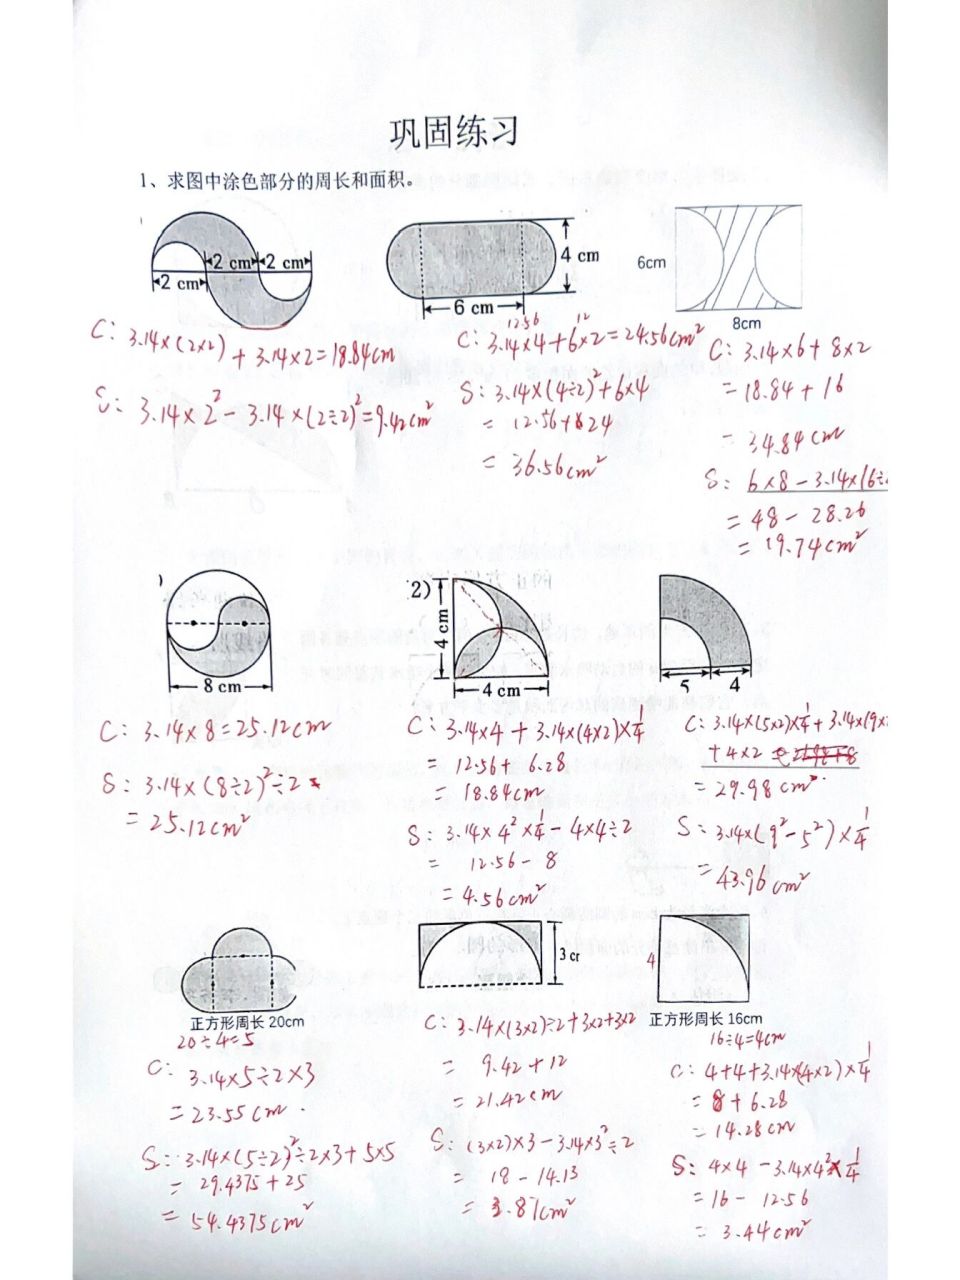 巩固练习
1、求图中涂色部分的周长和面积。
2 cm 2 cm
2 cm
4 cm
6 cm
6cm
8cm
C: 3.14×(2×2) + 3.14×2=18.84cm
S: 3.14×2² - 3.14×(2÷2)²=9.42cm²
12.56 12
C: 3.14×4+6×2=24.56cm²
S: 3.14×(4÷2)²+6×4
= 12.56+24
= 36.56cm²
C: 3.14×6+8×2
=18.84+16
= 34.84cm
S: 6×8-3.14×(6÷2
= 48-28.26
= 19.74cm²
)
8 cm
2)
4 cm
4 cm
5 4
C: 3.14×8=25.12cm
S: 3.14×(8÷2)²÷2
= 25.12cm²
C: 3.14×4+3.14×(4×2)×1/4
= 12.56+6.28
= 18.84cm
S: 3.14×4²×1/4-4×4÷2
= 12.56-8
= 4.56cm²
C: 3.14×(5×2)×1/4+3.14×(9×2
+4×2
=29.98cm
S: 3.14×(9²-5²)×1/4
= 43.96cm²
正方形周长 20cm
20÷4=5
C: 3.14×5÷2×3
=23.55cm
S: 3.14×(5÷2)²÷2×3+5×5
= 29.4375+25
= 54.4375cm²
3 cm
C: 3.14×(3×2)÷2+3×2+3×2
= 9.42+12
= 21.42cm
S: (3×2)×3-3.14×3²÷2
= 18-14.13
= 3.87cm²
4
正方形周长 16cm
16÷4=4cm
C: 4+4+3.14×(4×2)×1/4
= 8+6.28
= 14.28cm
S: 4×4-3.14×4²×1/4
=16-12.56
= 3.44cm²